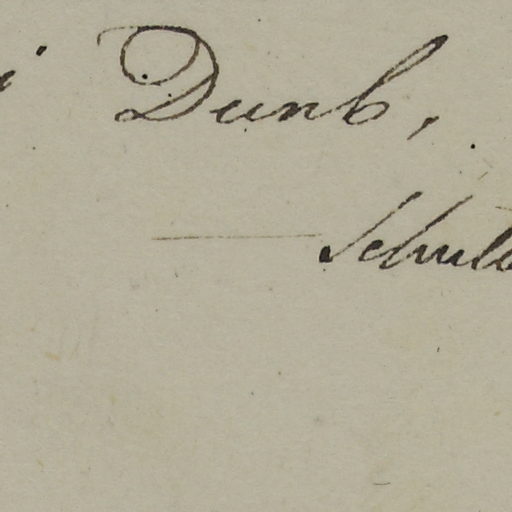 i Dunb,
Schult